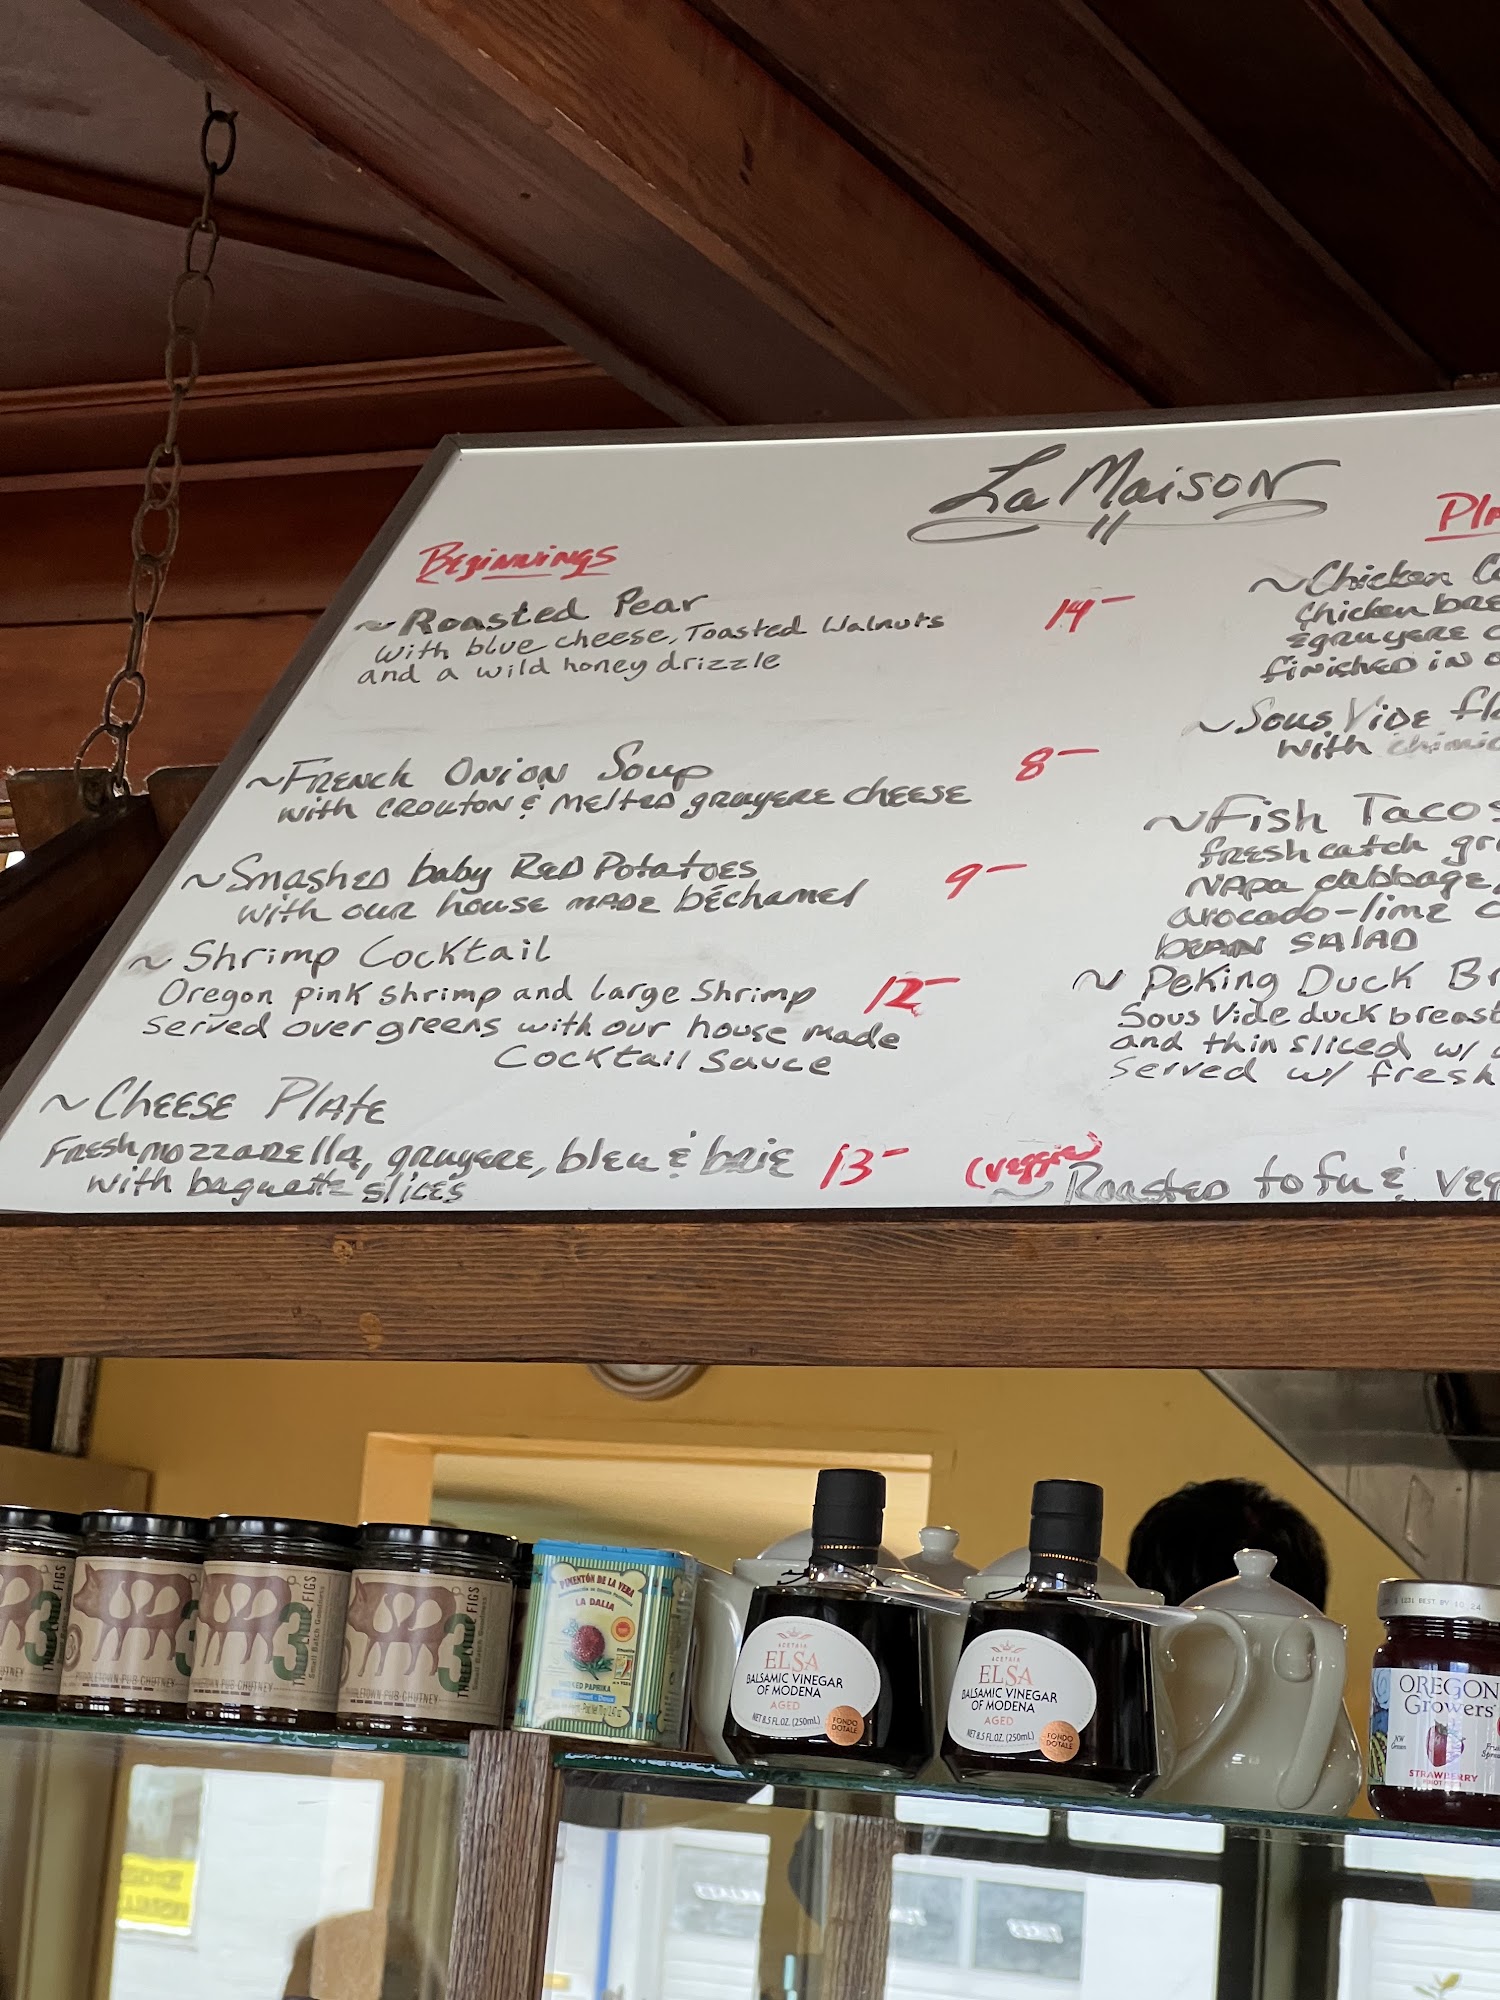 La Maison
Beginnings
~Roasted Pear 14-
with blue cheese, Toasted Walnuts
and a wild honey drizzle
~French Onion Soup 8-
with crouton & melted gruyere cheese
~Smashed baby Red Potatoes 9-
with our house made béchamel
~Shrimp Cocktail
Oregon pink shrimp and large shrimp 12-
Served over greens with our house made
Cocktail Sauce
~Cheese Plate
Fresh mozzarella, gruyere, bleu & brie 13-
with baguette slices
~Chicken
Chicken
&gruyere
finished in
~Sous Vide
with
~Fish Tacos
fresh catch
Napa cabbage,
avocado-lime
bean salad
~Peking Duck
Sous Vide duck breast
and thin sliced w/
Served w/ fresh
(veggie)
~Roasted tofu &
THREE LITTLE FIGS
Small Batch
3
MIDDLETOWN PUB CHUTNEY
PIMENTÓN DE LA VERA
LA DALIA
SMOKED PAPRIKA
ACETAIA
ELSA
BALSAMIC VINEGAR
OF MODENA
AGED
NET 8.5 FL.OZ. (250mL)
FONDO
DOTALE
ACETAIA
ELSA
BALSAMIC VINEGAR
OF MODENA
AGED
NET 8.5 FL.OZ. (250mL)
FONDO
DOTALE
OREGON
Growers
STRAWBERRY